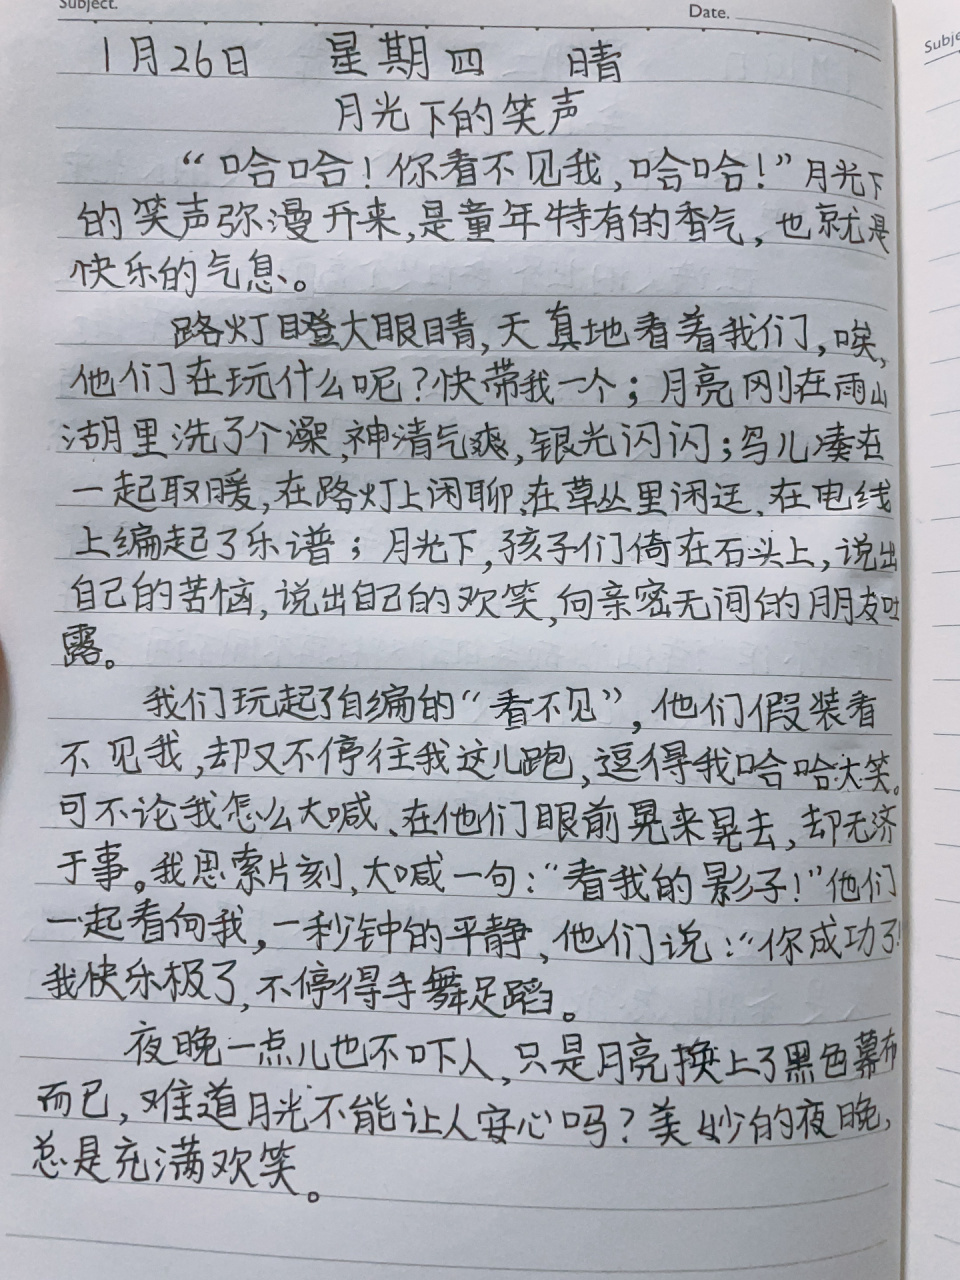 Subject.
Date.
1月26日 星期四 晴
月光下的笑声
“哈哈！你看不见我，哈哈！”月光下
的笑声弥漫开来，是童年特有的香气，也就是
快乐的气息、。
路灯瞪大眼睛，天真地看着我们，唉，
他们在玩什么呢？快带我一个；月亮刚在雨山
湖里洗了个澡，神清气爽，银光闪闪；鸟儿凑在
一起取暖，在路灯上闲聊，在草丛里闲逛，在电线
上编起了乐谱；月光下，孩子们倚在石头上，说出
自己的苦恼，说出自己的欢笑，向亲密无间的朋友吐
露。
我们玩起了自编的“看不见”，他们假装看
不见我，却又不停往我这儿跑，逗得我哈哈大笑。
可不论我怎么大喊、在他们眼前晃来晃去，却无济
于事。我思索片刻，大喊一句：“看我的影子！”他们
一起看向我，一秒钟的平静，他们说：“你成功了！
我快乐极了，不停得手舞足蹈。
夜晚一点儿也不吓人，只是月亮换上了黑色幕布
而已，难道月光不能让人安心吗？美妙的夜晚，
总是充满欢笑。